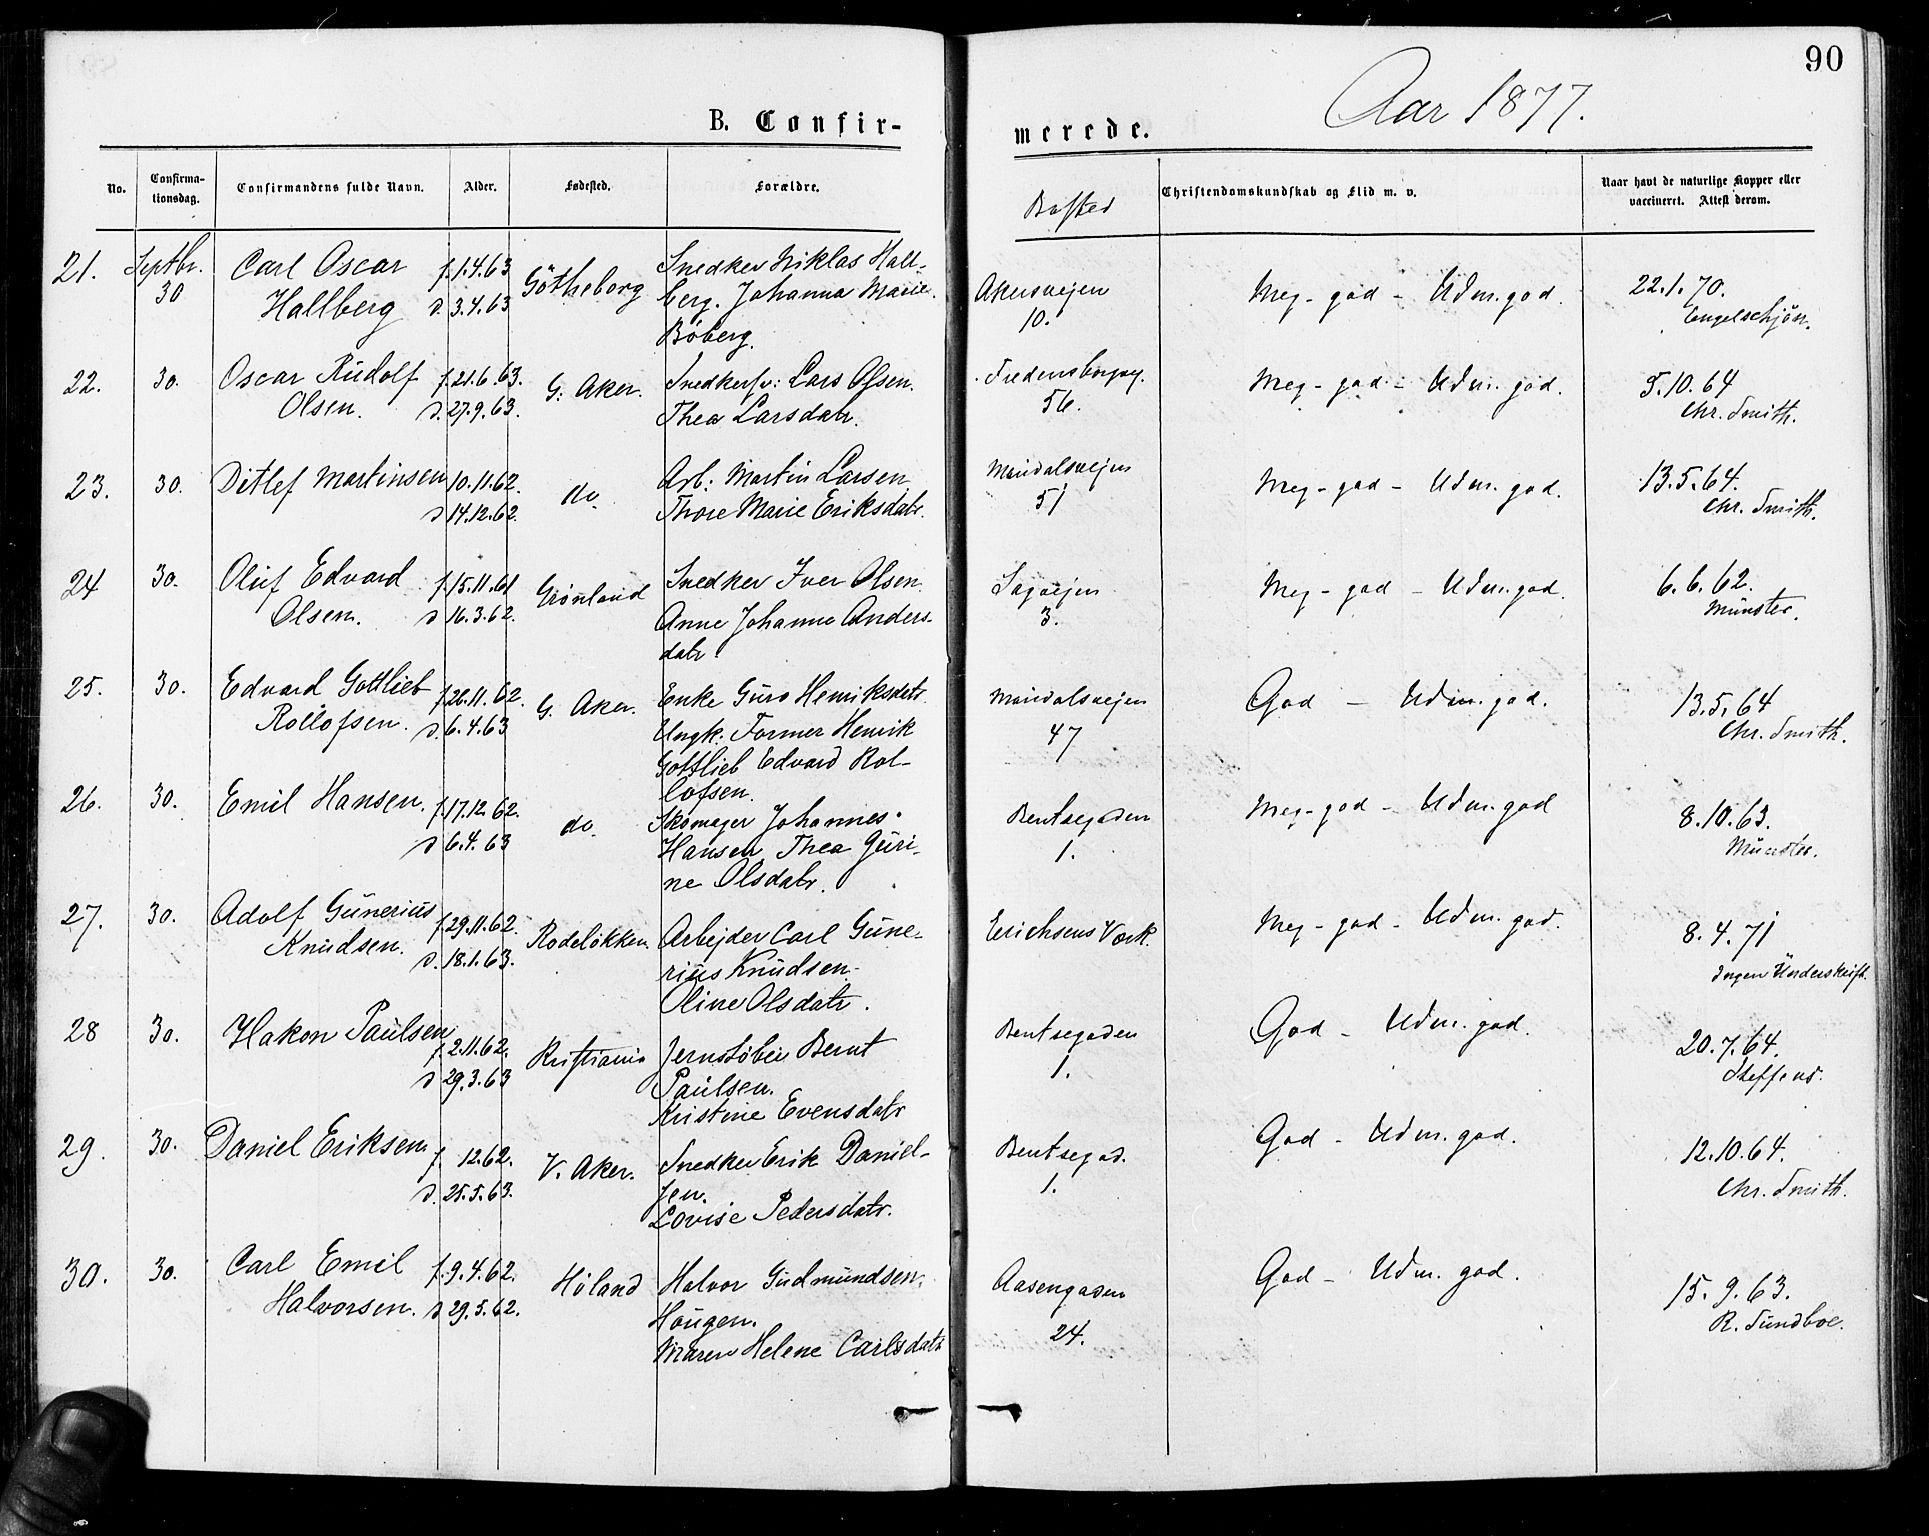 90
Aar 1877.
B. Confir-
merede.
No.
Confirma-
tionsdag.
Confirmandens fulde Navn.
Alder.
Fødested.
Forældre.
Bosted
Christendomskundskab og Flid m. v.
Naar havt de naturlige Kopper eller
vaccineret. Attest derom.
21. Septbr. Carl Oscar f. 1.4.63 Götheborg Snedker Niklas Hall- Akersvejen Meg-god - Udm. god. 22.1.70.
30 Hallberg d. 3.4.63 berg. Johanna Marie 10. Engelschjøn.
Böberg.
22. 30. Oscar Rudolf f. 21.6.63. G. Aker. Snedkersv: Lars Olsen. Fredensborgvej. Meg-god - Udm. god. 5.10.64
Olsen. d. 27.9.63. Thea Larsdatr. 56. Chr. Smith.
23. 30. Ditlef Martinsen 10.11.62. do. Arb: Martin Larsen Maridalsvejen Meg-god - Udm. god. 13.5.64.
d 14.12.62. Thore Marie Eriksdatr. 51 Chr. Smith.
24 30. Oluf Edvard f. 15.11.61 Grönland Snedker Iver Olsen Sagvejen Meg-god - Udm. god. 6.6.62.
Olsen. d 16.3.62. Anne Johanne Anders- 3. Münster.
datr.
25. 30. Edvard Gottlieb f. 26.11.62. G. Aker. Enke Guro Henriksdatr. Maridalsvejen God - Udm. god. 13.5.64
Rollofsen. d. 6.4.63 Ungk. Former Henrik 47 Chr. Smith.
Gottlieb Edvard Rol-
lofsen.
26. 30. Emil Hansen. f. 17.12.62. do. Skomager Johannes Bentsegaden Meg-god - Udm. god 8.10.63.
d 6.4.63 Hansen Thea Guri- 1. Münster.
ne Olsdatr.
27. 30. Adolf Gunerius f. 29.11.62. Rodelökken Arbejder Carl Gune- Erichsens Værk. Meg-god - Udm. god. 8.4.71
Knudsen. d. 18.1.63. rius Knudsen. Ingen Underskrift.
Oline Olsdatr.
28 30. Hakon Paulsen f. 2.11.62. Kristiania Jernstøber Bernt Bentsegaden God - Udm. god. 20.7.64.
d 29.3.63 Paulsen. 1. Steffens.
Kristine Evensdatr
29. 30. Daniel Eriksen f. 12.62. V. Aker. Snedker Erik Daniel- Bentsegad. God - Udm. god. 12.10.64.
d. 25.5.63. sen. 1. Chr. Smith.
Lovise Pedersdatr.
30. 30. Carl Emil f. 9.4.62. Höland Halvor Gudmundsen Aasengaden God - Udm. god. 15.9.63.
Halvorsen. d 29.5.62. Haugen. 24. R. Sundboe.
Maren Helene Carlsdatr